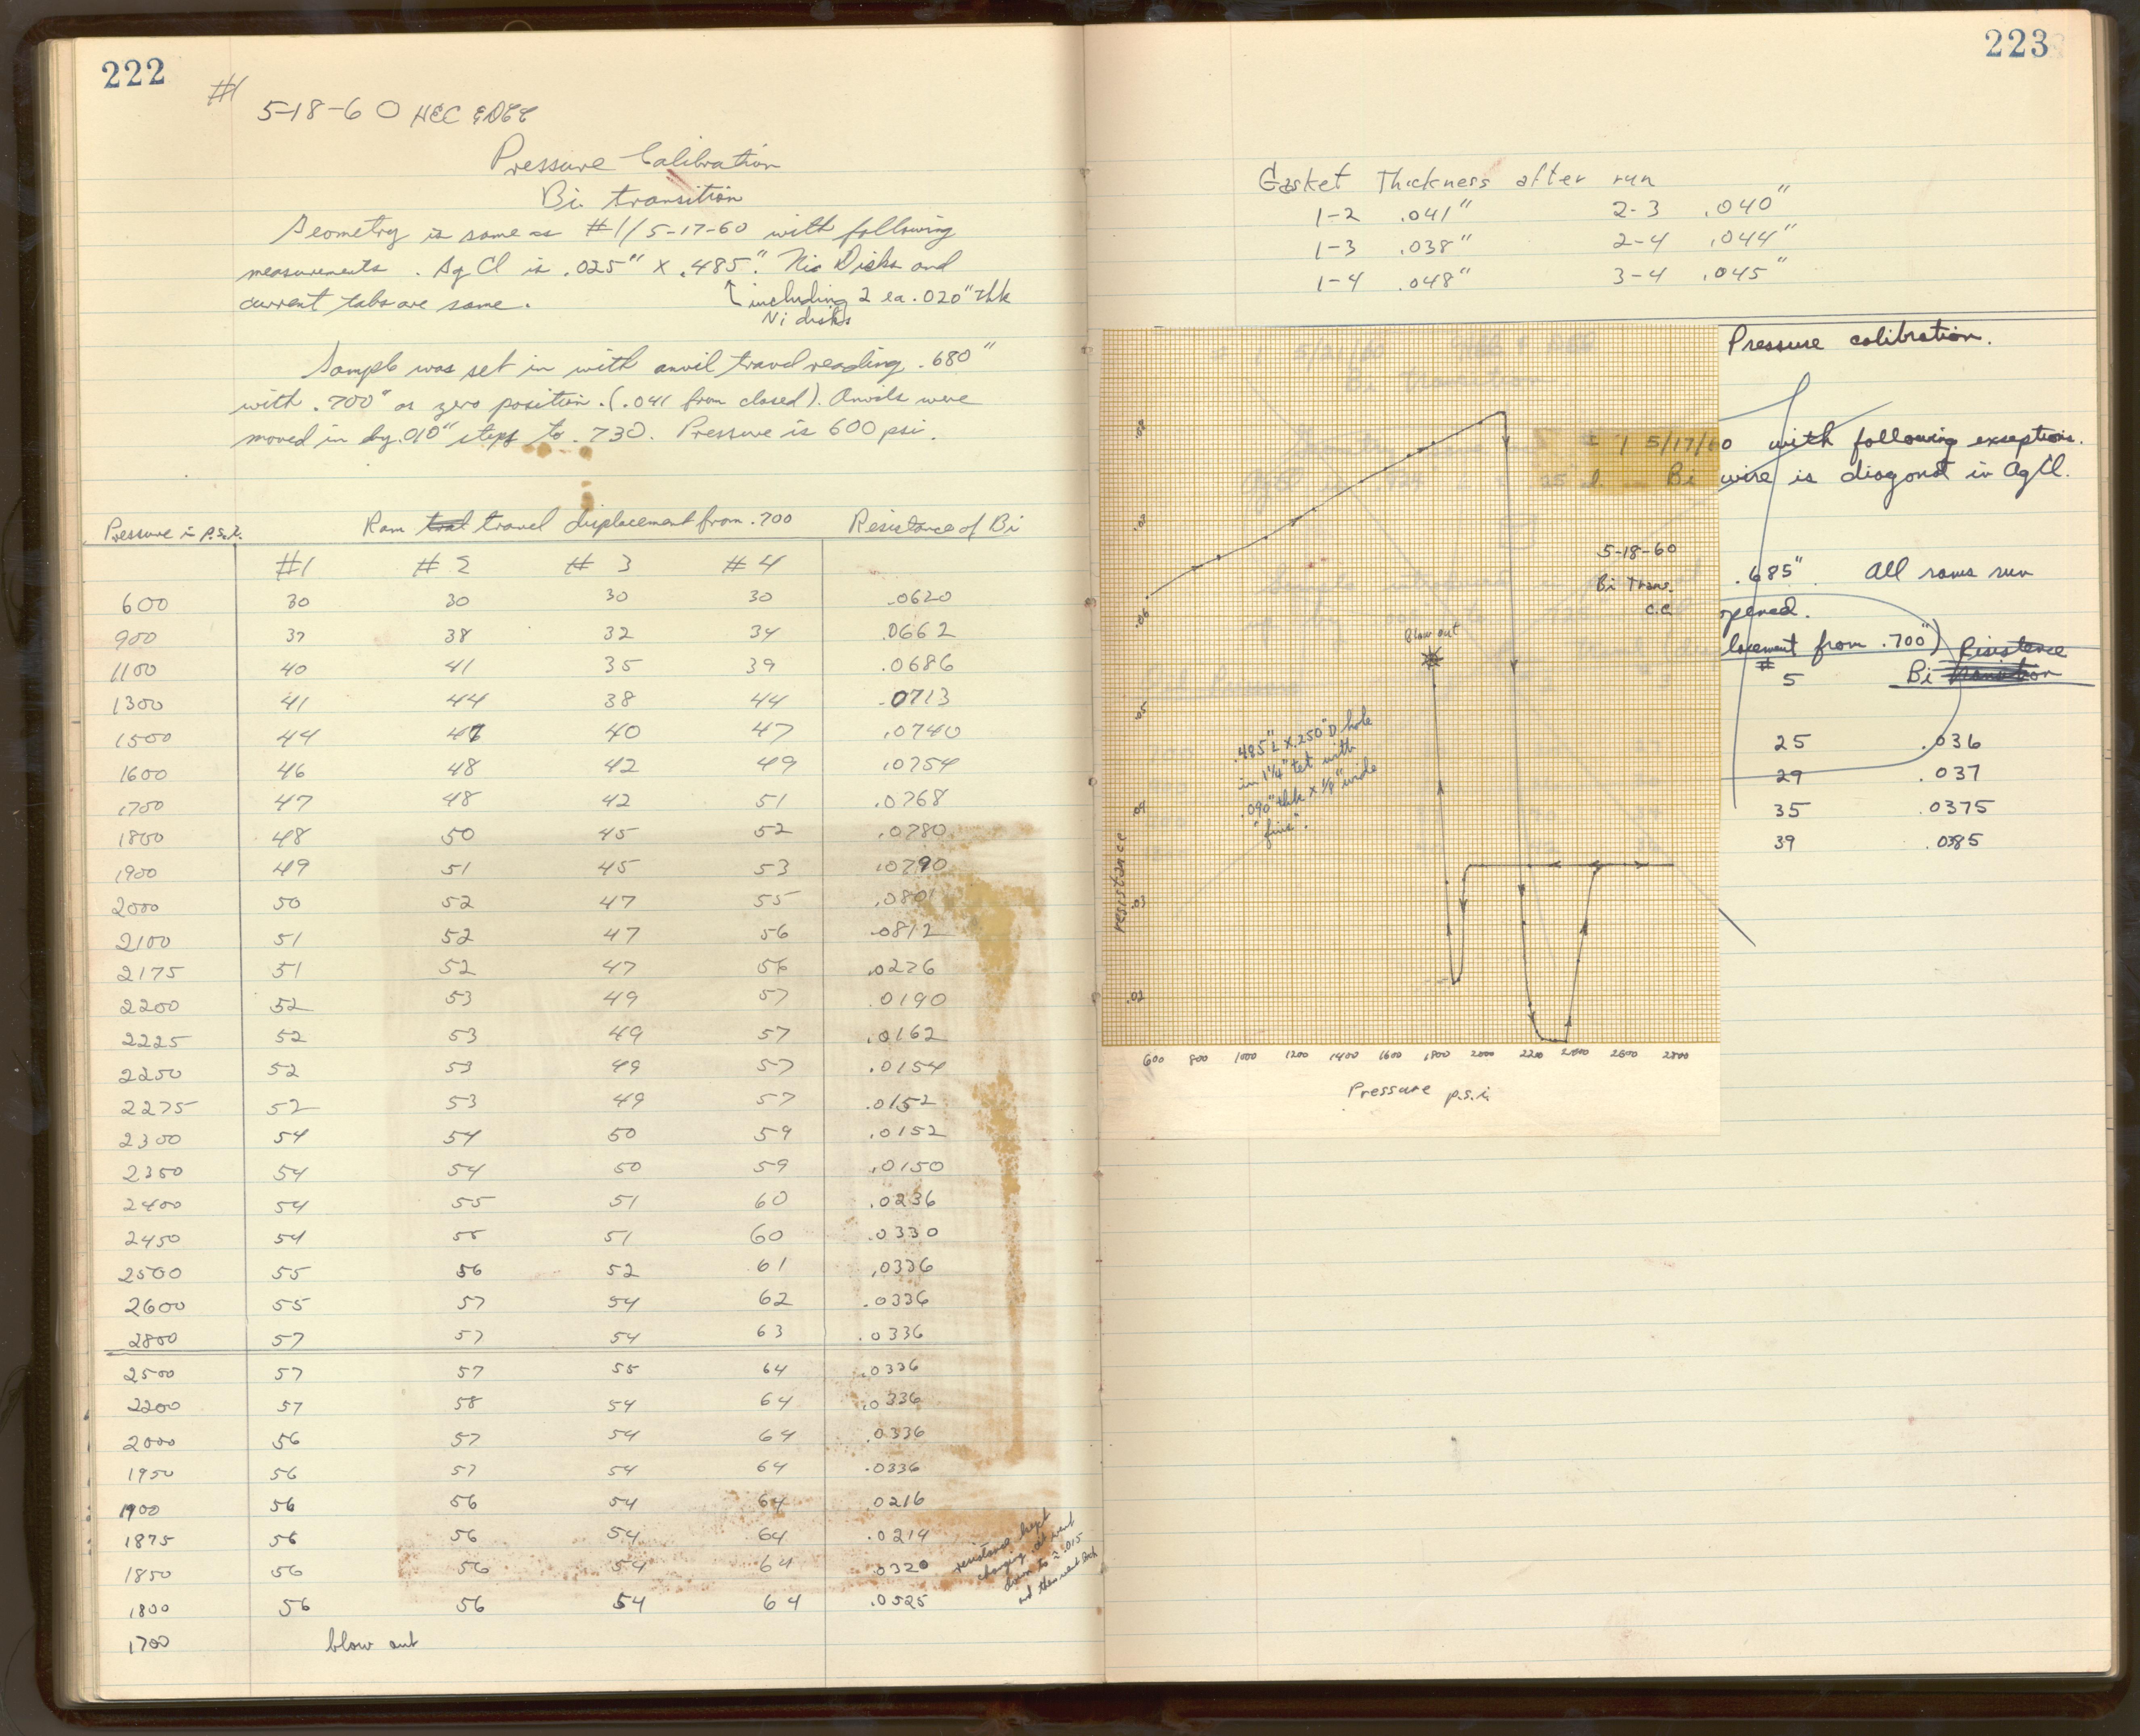 222
#1
5-18-60 HEC &
Pressure Calibration
Bi transition
Geometry is same as #1/5-17-60 with following
measurements. AgCl is .025" x .485". Nic Disks and
current tabs are same. ↑ including 2 ea .020" thk
Ni disks
Sample was set in with anvil travel reading .680"
with .700" as zero position. (.041 from closed). Anvils were
moved in by .010" steps to .730. Pressure is 600 psi.
Pressure in p.s.i. Ram travel displacement from .700 Resistance of Bi
#1 #2 #3 #4
600 30 30 30 30 .0620
900 37 38 32 34 .0662
1100 40 41 35 39 .0686
1300 41 44 38 44 .0713
1500 44 47 40 47 .0740
1600 46 48 42 49 .0754
1700 47 48 42 51 .0768
1800 48 50 45 52 .0780
1900 49 51 45 53 .0790
2000 50 52 47 55 .0801
2100 51 52 47 56 .0812
2175 51 52 47 56 .0276
2200 52 53 49 57 .0190
2225 52 53 49 57 .0162
2250 52 53 49 57 .0154
2275 52 53 49 57 .0152
2300 54 54 50 59 .0152
2350 54 54 50 59 .0150
2400 54 55 51 60 .0236
2450 54 55 51 60 .0330
2500 55 56 52 61 .0336
2600 55 57 54 62 .0336
2800 57 57 54 63 .0336
2500 57 57 55 64 .0336
2200 57 58 54 64 .0336
2000 56 57 54 64 .0336
1950 56 57 54 64 .0336
1900 56 56 54 64 .0216
1875 56 56 54 64 .0214
1850 56 56 54 64 .0320
1800 56 56 54 64 .0525
resistance kept
changing it went
down to ≈ .015
and then went back
1700 blow out
223
Gasket Thickness after run
1-2 .041" 2-3 .040"
1-3 .038" 2-4 .044"
1-4 .048" 3-4 .045"
Pressure calibration.
# 1 5/17/60 with following exceptions.
Bi wire is diagonal in AgCl.
.685". All rams run
opened.
lacement from .700") Resistance
# 5 Bi
25 .036
29 .037
35 .0375
39 .0385
5-18-60
Bi Trans.
C.C.
blow out
.485"L x .250"D hole
in 1¼" tet with
.090" thk x ⅛" wide
"fins".
resistance
.08
.07
.06
.05
.04
.03
.02
600 800 1000 1200 1400 1600 1800 2000 2200 2400 2600 2800
Pressure p.s.i.